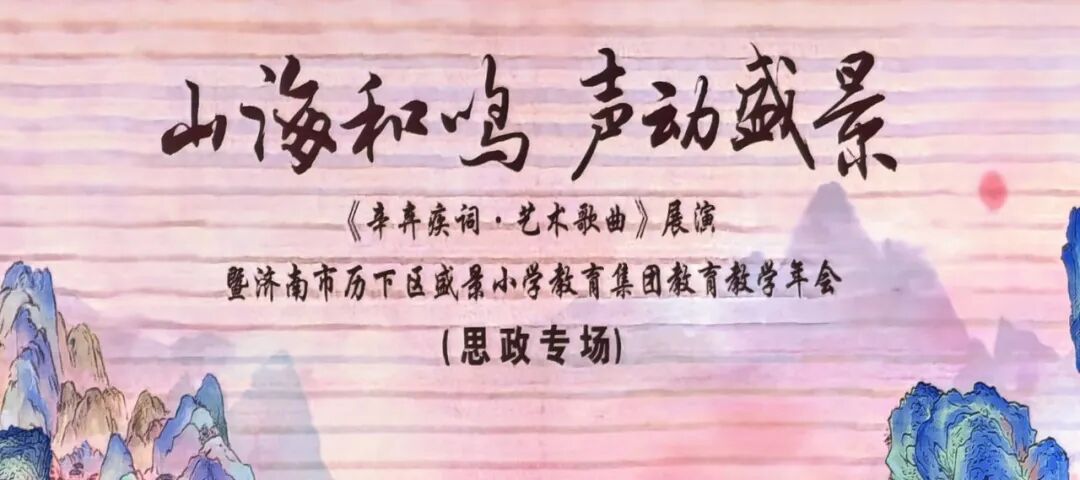 山海和鸣 声动盛景
《辛弃疾词·艺术歌曲》展演
暨济南市历下区盛景小学教育集团教育教学年会
(思政专场)